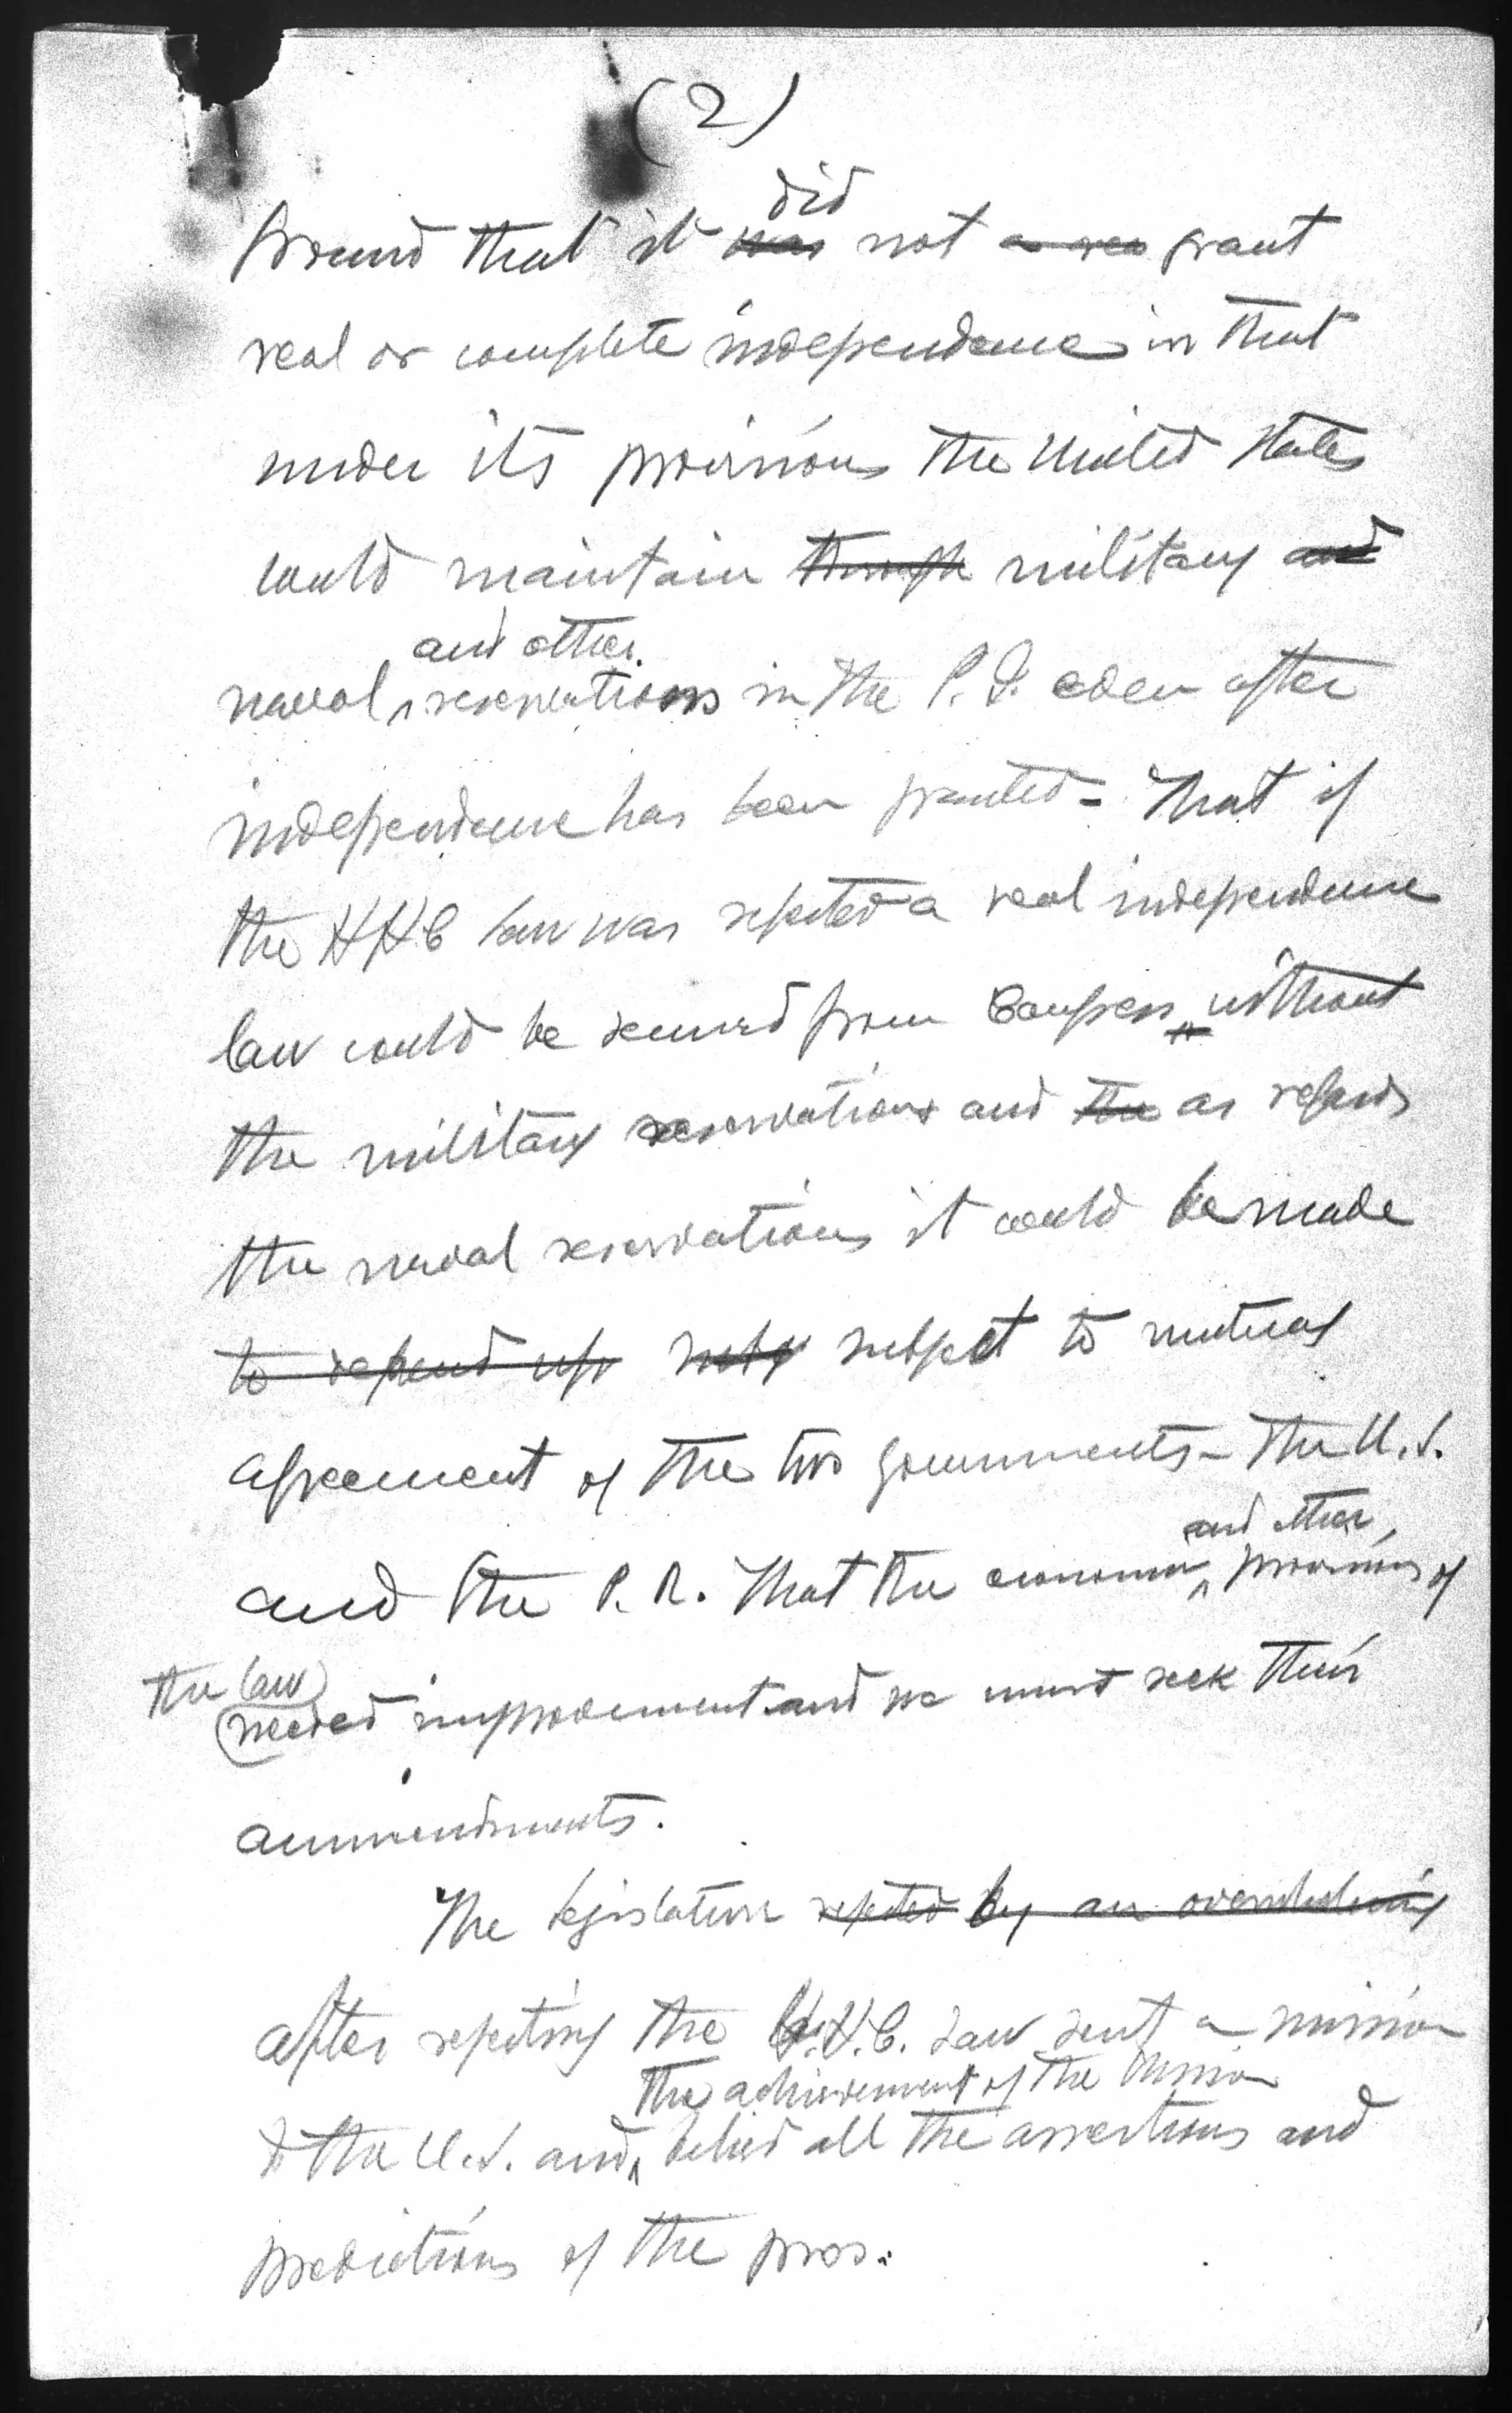 (2)
did
ground that it was not a rea grant
real or complete independence in that
under its provisions the United States
could maintain through military and
and other
naval reservations in the P. I. even after
independence has been granted - That if
the HHC law was rejected a real independence
law could be secured from Congress without
the military reservations and the as regards
the naval reservations it would be made
to depend upo subj subject to mutual
agreement of the two governments - The U.S.
and other
and the P. I. That the economic provisions of
the law
needed improvement and we must seek their
ammendments.
The legislature rejected by an overwhelming
after rejecting the H.H.C. Law sent a mission
the achievement of the Mission
to the U.S. and belied all the assertions and
predictions of the pros.